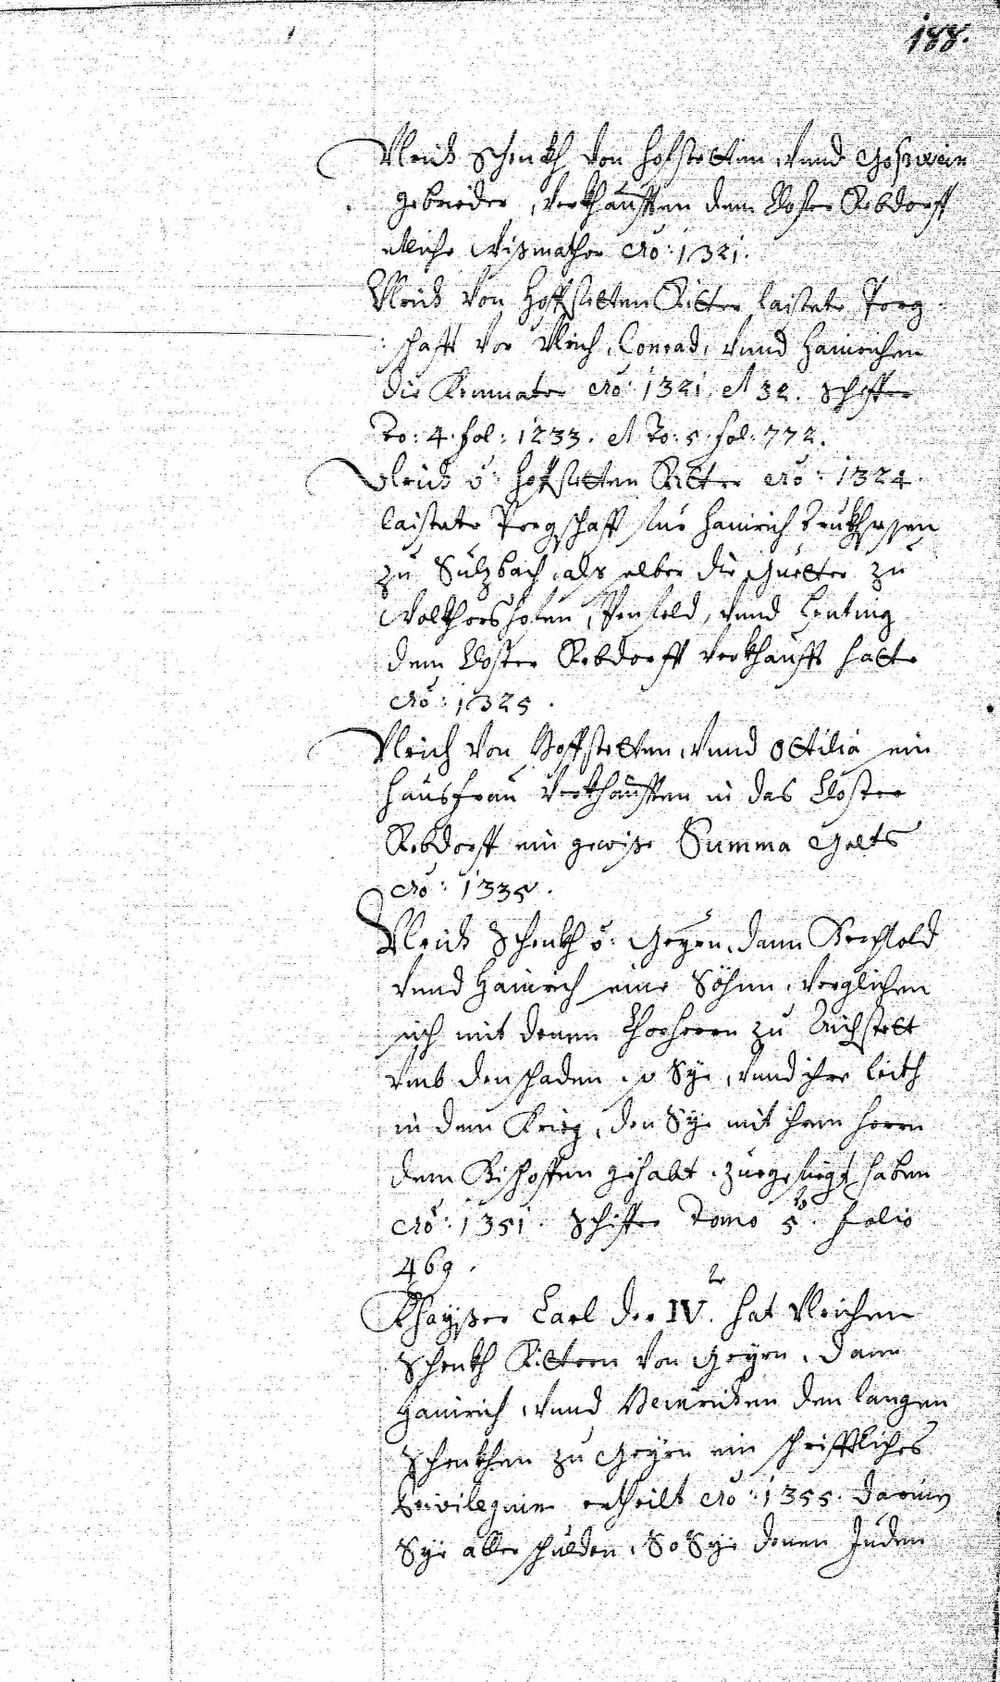 188.
Ulrich Schenkh von Hofstetten, vnnd Goßwein
gebrieder, verkhaufften dem Closter Rebdorff
etliche Wißmather Aõ: 1321.
Ulrich von Hoffstetten Ritter laistete Porg-
schafft vor Ulrich, Conrad, vnnd Hainrichen
die Kemnater Aõ: 1321. et 32. Schiffer
To: 4. fol: 1233. et To: 5. fol: 772.
Vlrich v: Hofstetten Ritter Aõ: 1324.
laistete Porgschafft fur Hainrich Trukhsessen
zu Sulzbach, als selber die Guetter zu
Wolkhershofen, Penfeld, vnnd Lenting
dem Closter Rebdorff verkhaufft hatte
Aõ: 1325.
Ulrich von Hoffstetten, vnnd Ottilia sein
hausfrau verkhaufften in das Closter
Rebdorff ein gewiße Summa Gelts
Aõ: 1335.
Ulrich Schenkh v: Geyrn, dann Berchtold
vnnd Hainrich seine Söhne, verglichen
sich mit denen Chorherrn zu Aichstett
vmb den schaden, so Sye, vnnd ihre leith
in dem Krieg, den Sye mit ihrem herrn
dem Bischoffen gehabt, zuegefuegt haben
Aõ: 1351. Schiffer Tomo 5to. folio
469.
Khayßer Carl der IV.te hat Ulrichen
Schenkh Rittern von Geyrn, dann
Hainrich, vnnd Heinrichen den langen
Schenkhen zu Geyrn ein schrifftliches
Privilegium ertheilt Aõ: 1355. darumb
Sye aller schulden, So Sye denen Juden